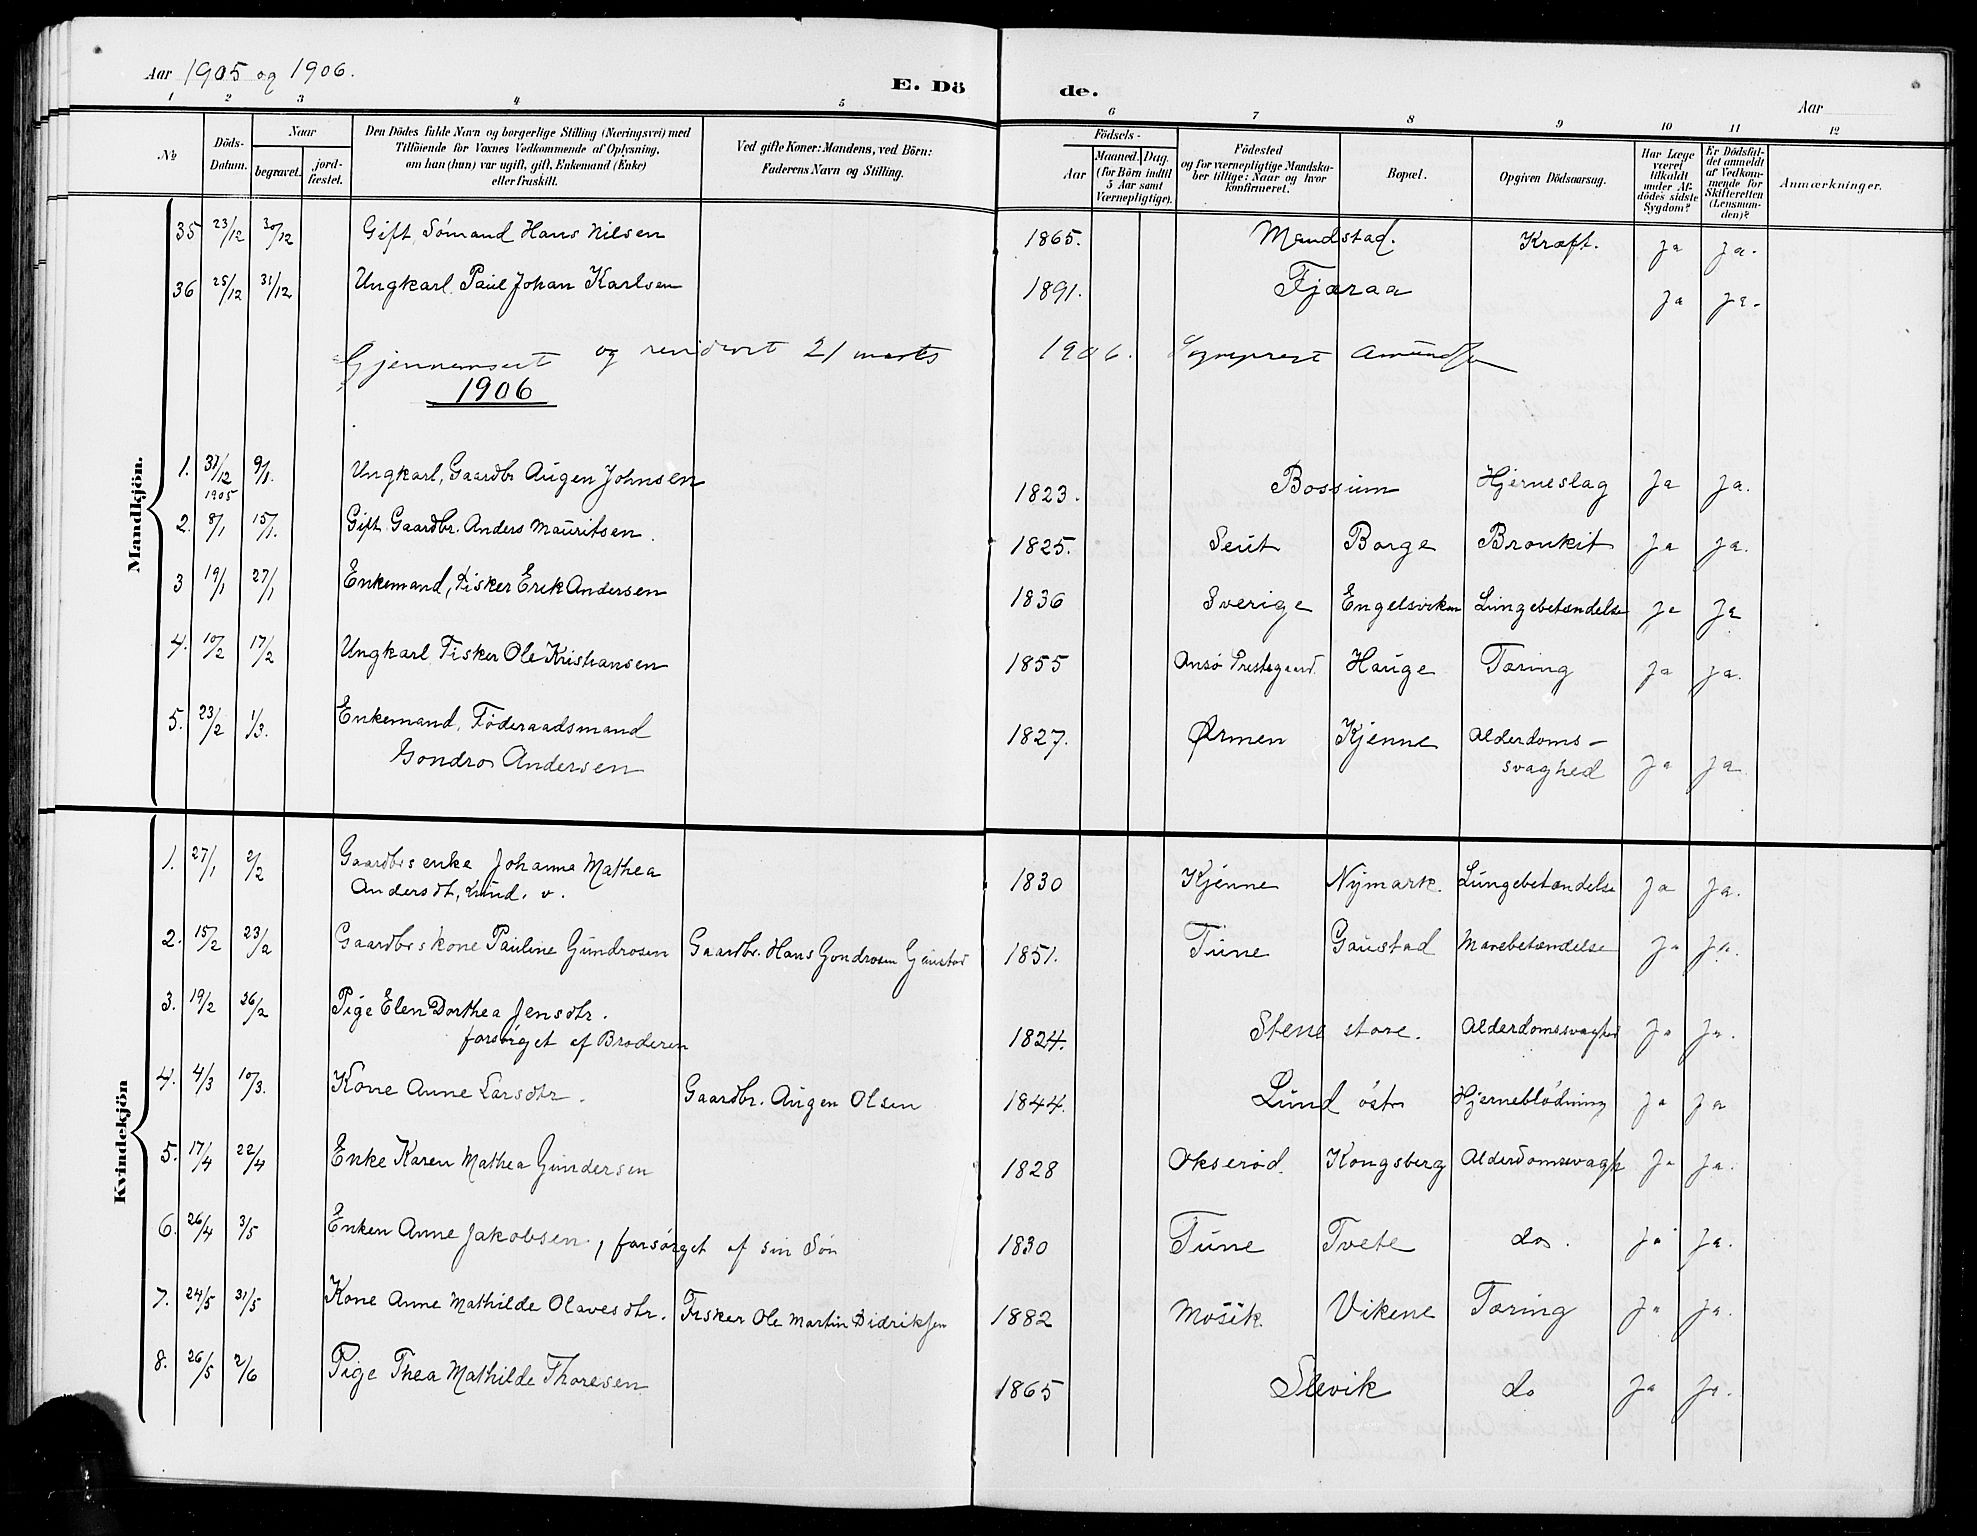 Aar 1905 og 1906.
E. Dö de.
Aar
1 2 3 4 5 6 7 8 9 10 11 12
No
Döds-Datum.
Naar
begravet.
jord-fæstet.
Den Dödes fulde Navn og borgerlige Stilling (Næringsvei) med
Tilföiende for Voxnes Vedkommende af Oplysning,
om han (hun) var ugift, gift, Enkemand (Enke)
eller fraskilt.
Ved gifte Koner: Mandens, ved Börn:
Faderens Navn og Stilling.
Födsels-
Aar
Maaned. Dag.
(for Börn indtil
5 Aar samt
Værnepligtige).
Födested
og for værnepligtige Mandska-
ber tillige: Naar og hvor
konfirmeret.
Bopæl.
Opgiven Dödsaarsag.
Har Læge
været
tilkaldt
under Af-
dödes sidste
Sygdom?
Er Dödsfal-
det anmeldt
af Vedkom-
mende for
Skifteretten
(Lensman-
den)?
Anmærkninger.
Mandkjön.
35 23/12 30/12 Gift, Sømand Hans Nilsen 1865. Mandstad. Kræft. Ja Ja.
36 25/12 31/12 Ungkarl Paul Johan Karlsen 1891. Fjæraa Ja Ja.
Gjennemseet og revideret 21 marts 1906. Amundsen
1906
1. 31/12 1905 9/1. Ungkarl, Gaardbr Augen Johnsen 1823. Bossum Hjerneslag Ja Ja.
2. 8/1 15/1. Gift Gaardbr. Anders Mauritsen. 1825. Seut Borge Bronkit Ja Ja.
3 19/1 27/1 Enkemand, Fisker Erik Andersen 1836 Sverige Engelsviken Lungebetændelse Ja Ja
4. 10/2 17/2 Ungkarl Fisker Ole Kristiansen 1855 Onsø Prestegaard Hauge Tæring Ja Ja.
5. 23/2 1/3. Enkemand, Föderaadsmand
Gondros Andersen 1827. Ørmen Kjenne Alderdoms-
svaghed Ja Ja
Kvindekjön
1. 27/1 2/2 Gaardbrs enke Johanna Mathea
Andersdt, Lund. v. 1830 Kjenne Nymark. Lungebetændelse Ja Ja.
2. 15/2 23/2 Gaardbrs kone Pauline Gundrosen Gaardbr. Hans Gondrosen Gaustad 1851. Tune Gaustad Mavebetændelse Ja Ja.
3. 19/2 26/2 Pige Elen Dorthea Jensdtr.
forsörget af Broderen 1824. Stene store. Alderdomssvaghed Ja Ja.
4. 4/3 10/3. Kone Anne Larsdtr. Gaardbr. Augen Olsen 1844. Lund östr Hjerneblödning Ja Ja
5. 17/4 22/4 Enke Karen Mathea Gundersen 1828 Okseröd. Kongsberg Alderdomssvagh Ja Ja.
6. 26/4 3/5 Enken Anne Jakobsen, forsörget af sin Sön 1830 Tune Tvete do. Ja Ja.
7. 24/5 31/5 Kone Anne Mathilde Olavesdtr. Fisker Ole Martin Didriksen 1882 Vikene Tæring Ja Ja.
8. 26/5 2/6 Pige Thea Mathilde Thoresen 1865 Slevik do Ja Ja.